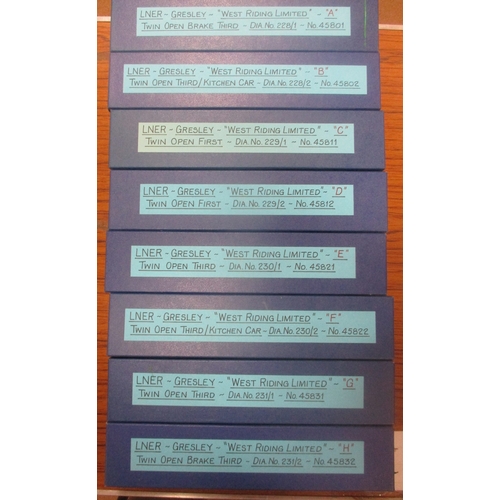 LNER - GRESLEY - "WEST RIDING LIMITED" - "A"
TWIN OPEN BRAKE THIRD - DIA No. 228/1 - No. 45801
LNER - GRESLEY - "WEST RIDING LIMITED" - "B"
TWIN OPEN THIRD/KITCHEN CAR - DIA No. 228/2 - No. 45802
LNER - GRESLEY - "WEST RIDING LIMITED" - "C"
TWIN OPEN FIRST - DIA No. 229/1 - No. 45811
LNER - GRESLEY - "WEST RIDING LIMITED" - "D"
TWIN OPEN FIRST - DIA No. 229/2 - No. 45812
LNER - GRESLEY - "WEST RIDING LIMITED" - "E"
TWIN OPEN THIRD - DIA No. 230/1 - No. 45821
LNER - GRESLEY - "WEST RIDING LIMITED" - "F"
TWIN OPEN THIRD/KITCHEN CAR - DIA No. 230/2 - No. 45822
LNER - GRESLEY - "WEST RIDING LIMITED" - "G"
TWIN OPEN THIRD - DIA No. 231/1 - No. 45831
LNER - GRESLEY - "WEST RIDING LIMITED" - "H"
TWIN OPEN BRAKE THIRD - DIA No. 231/2 - No. 45832